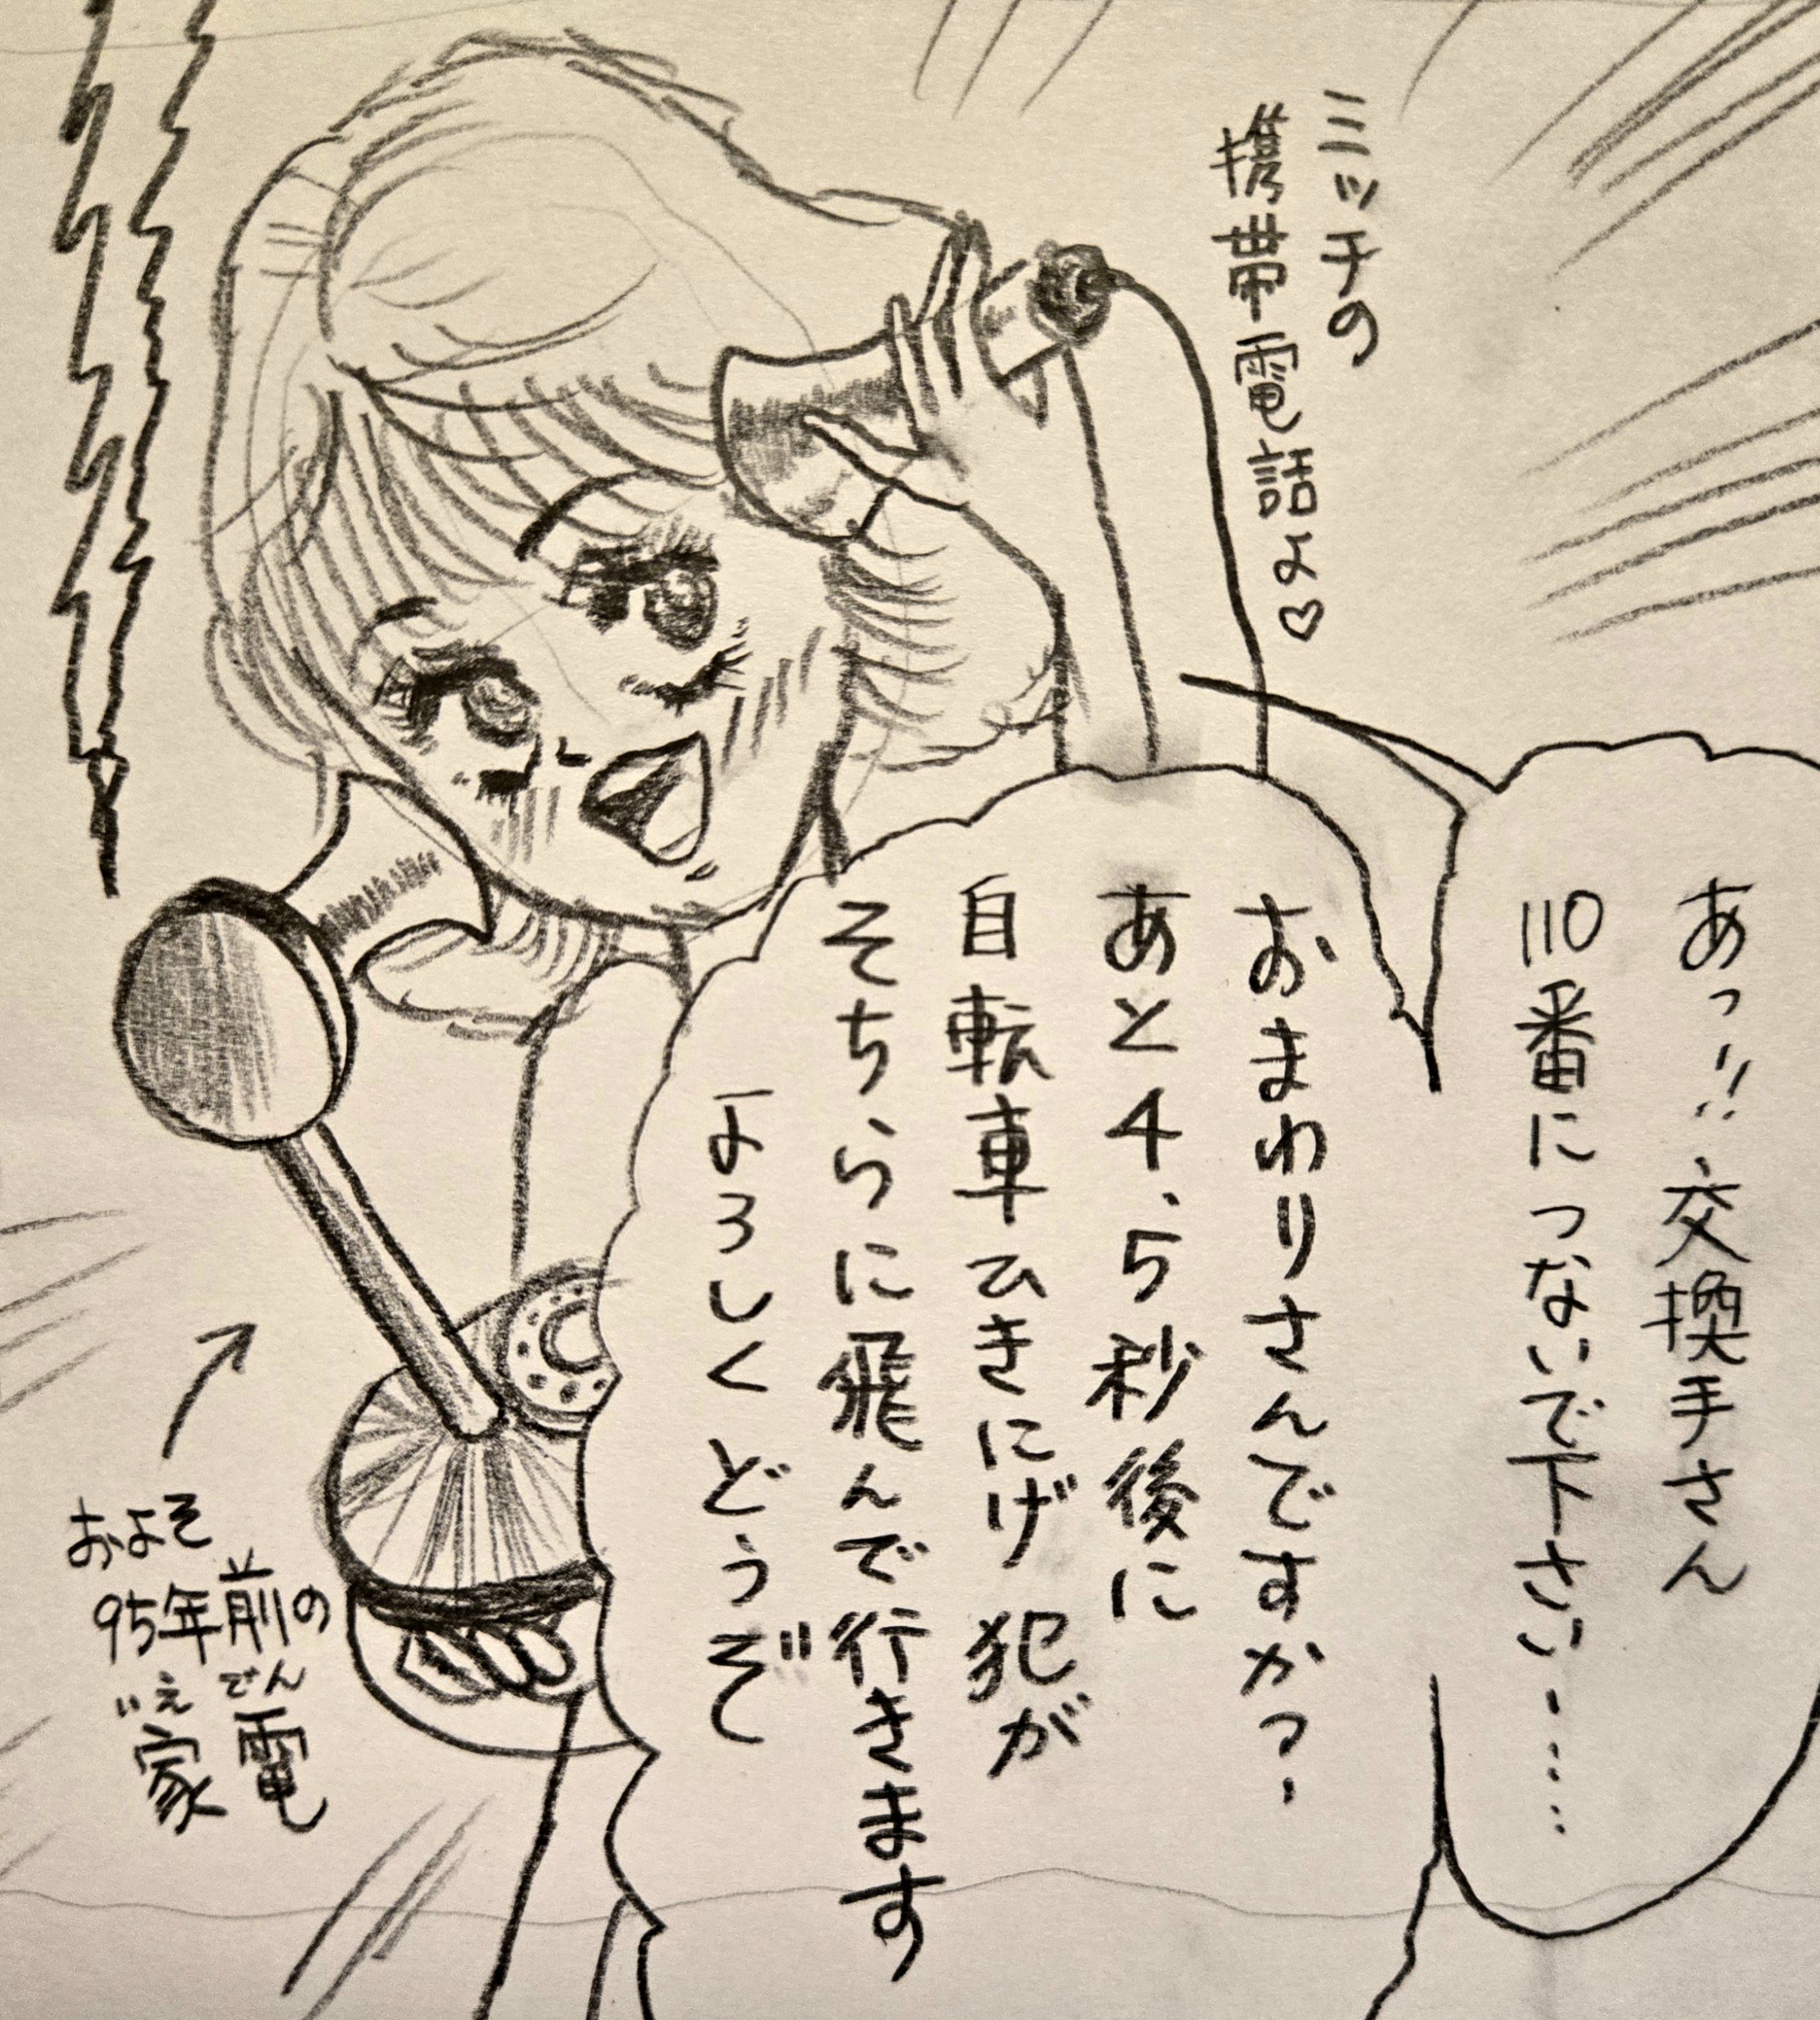 ミッチの
携帯電話よ♡
あっ!!、交換手さん
110番につないで下さい……
おまわりさんですかっ・
あと4、5秒後に
自転車ひきにげ犯が
そちらに飛んで行きます
よろしくどうぞ
およそ
95年前の
でん
電
いえ
家